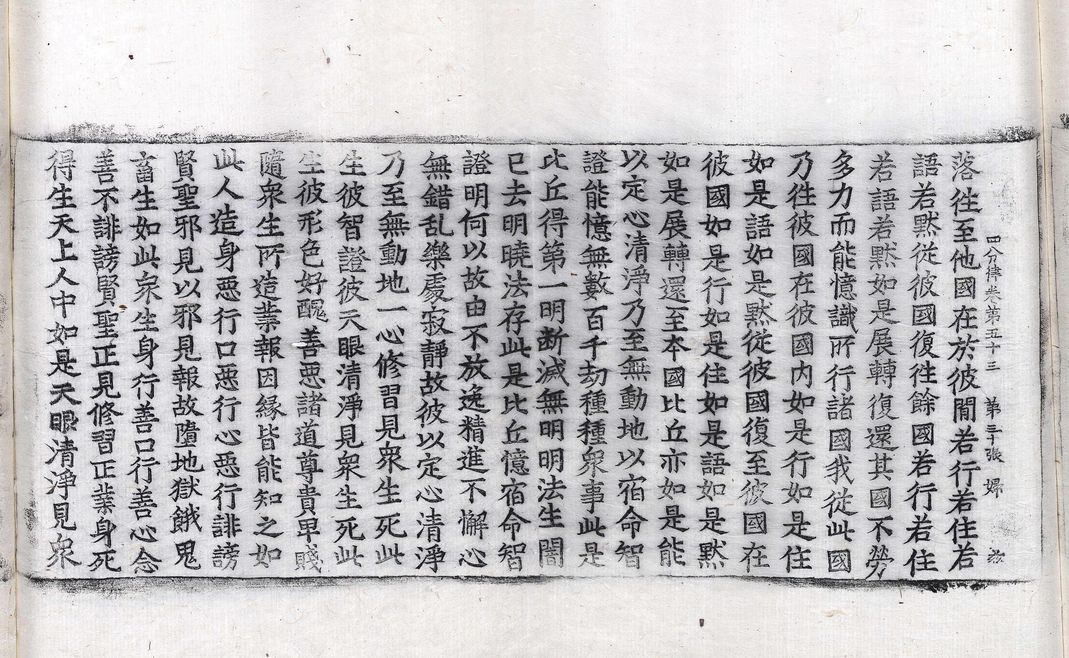 四分律卷第五十三　第三十張　婦
落往至他國在於彼間若行若住若
語若黙從彼國復往餘國若行若住
若語若黙如是展轉復還其國不勞
多力而能憶識所行諸國我從此國
乃往彼國在彼國内如是行如是住
如是語如是黙從彼國復至彼國在
彼國如是行如是住如是語如是黙
如是展轉還至夲國比丘亦如是能
以定心清淨乃至無動地以宿命智
證能憶無數百千劫種種衆事此是
比丘得第一明断滅無明明法生闇
已去明曉法存此是比丘憶宿命智
證明何以故由不放逸精進不懈心
無錯乱樂處寂靜故彼以定心清淨
乃至無動地一心修習見衆生死此
生彼智證彼天眼清淨見衆生死此
生彼形色好醜善惡諸道尊貴卑賤
隨衆生所造業報因緣皆能知之如
此人造身惡行口惡行心惡行誹謗
賢聖邪見以邪見報故墮地獄餓鬼
畜生如此衆生身行善口行善心念
善不誹謗賢聖正見修習正業身死
得生天上人中如是天眼清淨見衆